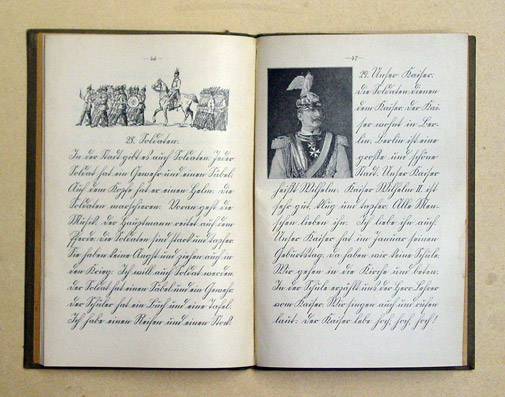 — 46 —
28. Soldaten.
In der Stadt gibt es auch Soldaten. Jeder
Soldat hat ein Gewehr und einen Säbel.
Auf dem Kopfe hat er einen Helm. Die
Soldaten marschieren. Voran geht die
Musik. Der Hauptmann reitet auf dem
Pferde. Die Soldaten sind stark und tapfer.
Sie haben keine Angst und ziehen auch in
den Krieg. Ich will auch Soldat werden.
Der Soldat hat einen Säbel und ein Gewehr.
Der Schüler hat ein Buch und eine Tafel.
Ich habe einen Reifen und einen Stock.
— 47 —
29. Unser Kaiser.
Die Soldaten dienen
dem Kaiser. Der Kai-
ser wohnt in Ber-
lin. Berlin ist eine
große und schöne
Stadt. Unser Kaiser
heißt Wilhelm. Kaiser Wilhelm II. ist
sehr gut, klug und tapfer. Alle Men-
schen lieben ihn. Ich liebe ihn auch.
Unser Kaiser hat im Januar seinen
Geburtstag. Da haben wir keine Schule.
Wir gehen in die Kirche und beten.
In der Schule erzählt uns der Herr Lehrer
vom Kaiser. Wir singen auch und rufen
laut: Der Kaiser lebe hoch, hoch, hoch!